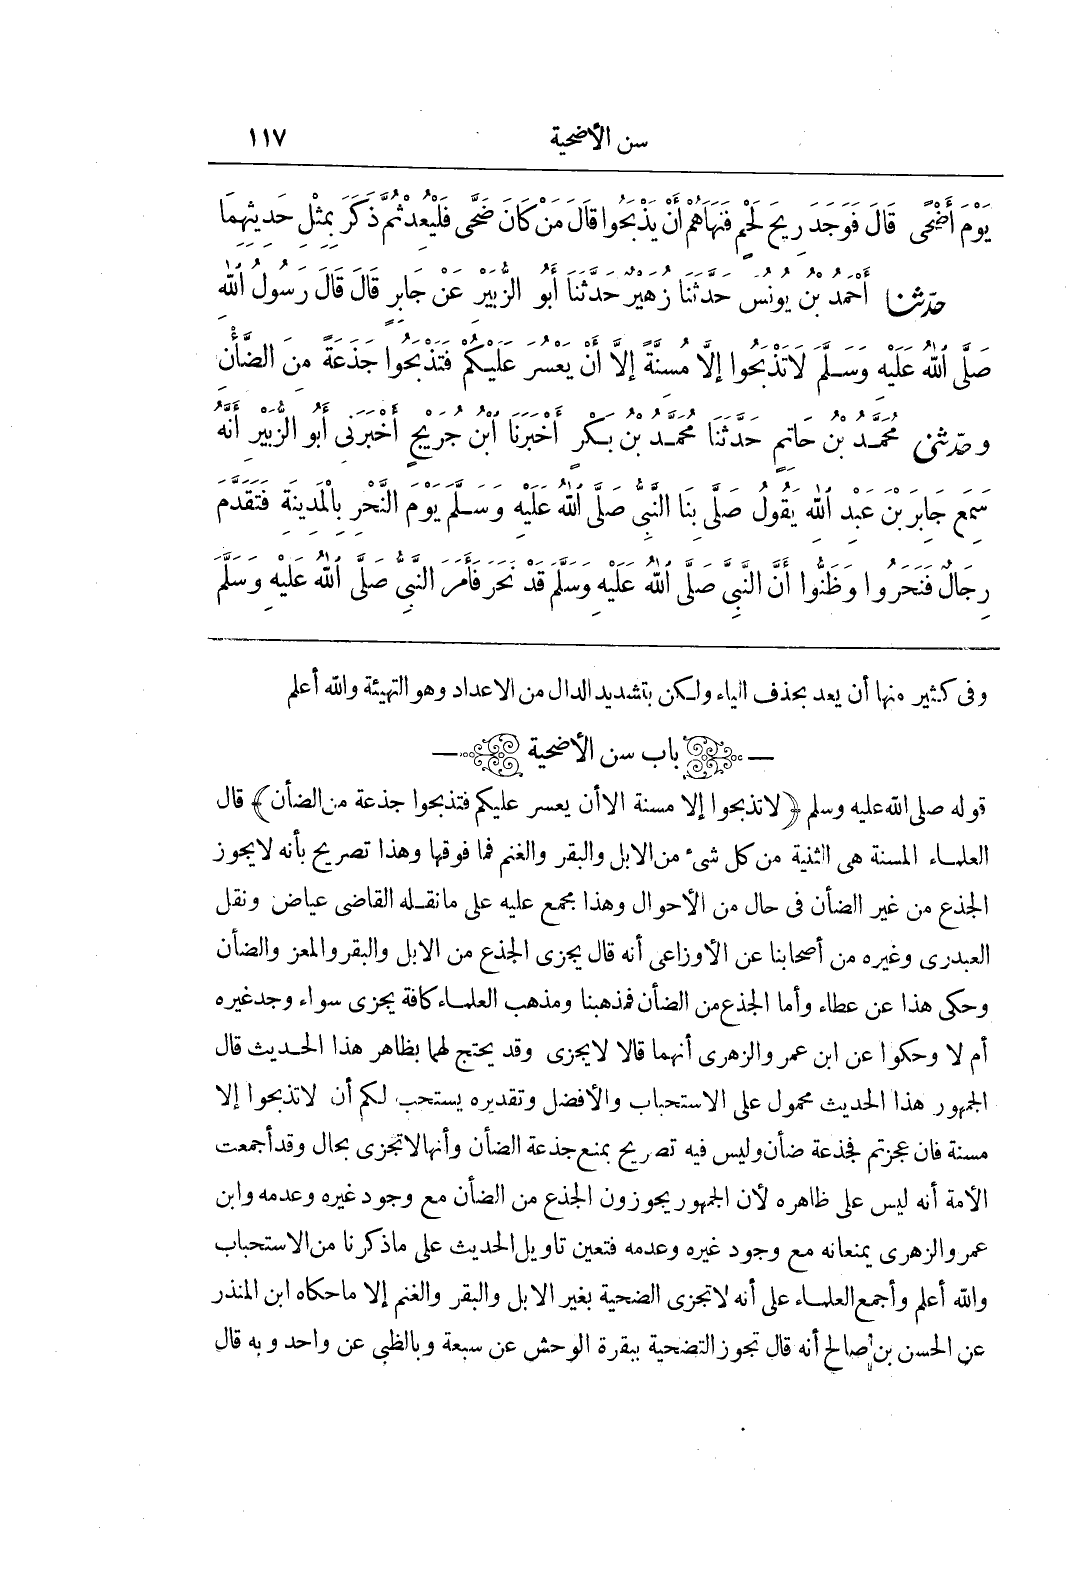 سن الأضحية ١١٧
يَوْمَ أَضْحًى قَالَ فَوَجَدَ رِيحَ لَحْمٍ فَنَهَاهُمْ أَنْ يَذْبَحُوا قَالَ مَنْ كَانَ ضَحَّى فَلْيُعِدْ ثُمَّ ذَكَرَ بِمِثْلِ حَدِيثِهِمَا
حدّثنا أَحْمَدُ بْنُ يُونُسَ حَدَّثَنَا زُهَيْرٌ حَدَّثَنَا أَبُو الزُّبَيْرِ عَنْ جَابِرٍ قَالَ قَالَ رَسُولُ اللّٰهِ
صَلَّى اللّٰهُ عَلَيْهِ وَسَلَّمَ لَا تَذْبَحُوا إِلَّا مُسِنَّةً إِلَّا أَنْ يَعْسُرَ عَلَيْكُمْ فَتَذْبَحُوا جَذَعَةً مِنَ الضَّأْنِ
وحدّثني مُحَمَّدُ بْنُ حَاتِمٍ حَدَّثَنَا مُحَمَّدُ بْنُ بَكْرٍ أَخْبَرَنَا ابْنُ جُرَيْجٍ أَخْبَرَنِى أَبُو الزُّبَيْرِ أَنَّهُ
سَمِعَ جَابِرَ بْنَ عَبْدِ اللّٰهِ يَقُولُ صَلَّى بِنَا النَّبِىُّ صَلَّى اللّٰهُ عَلَيْهِ وَسَلَّمَ يَوْمَ النَّحْرِ بِالْمَدِينَةِ فَتَقَدَّمَ
رِجَالٌ فَنَحَرُوا وَظَنُّوا أَنَّ النَّبِىَّ صَلَّى اللّٰهُ عَلَيْهِ وَسَلَّمَ قَدْ نَحَرَ فَأَمَرَ النَّبِىُّ صَلَّى اللّٰهُ عَلَيْهِ وَسَلَّمَ
وفى كثير منها أن يعد بحذف الياء ولكن بتشديد الدال من الاعداد وهو التهيئة والله أعلم
باب سن الأضحية
قوله صلى الله عليه وسلم ﴿لا تذبحوا إلا مسنة الا أن يعسر عليكم فتذبحوا جذعة من الضأن﴾ قال
العلماء المسنة هى الثنية من كل شىء من الابل والبقر والغنم فما فوقها وهذا تصريح بأنه لا يجوز
الجذع من غير الضأن فى حال من الأحوال وهذا مجمع عليه على ما نقله القاضى عياض ونقل
العبدرى وغيره من أصحابنا عن الأوزاعى أنه قال يجزى الجذع من الابل والبقر والمعز والضأن
وحكى هذا عن عطاء وأما الجذع من الضأن فمذهبنا ومذهب العلماء كافة يجزى سواء وجد غيره
أم لا وحكوا عن ابن عمر والزهرى أنهما قالا لا يجزى وقد يحتج لهما بظاهر هذا الحديث قال
الجمهور هذا الحديث محمول على الاستحباب والأفضل وتقديره يستحب لكم أن لا تذبحوا إلا
مسنة فان عجزتم فجذعة ضأن وليس فيه تصريح بمنع جذعة الضأن وأنها لا تجزى بحال وقد أجمعت
الأمة أنه ليس على ظاهره لأن الجمهور يجوزون الجذع من الضأن مع وجود غيره وعدمه وابن
عمر والزهرى يمنعانه مع وجود غيره وعدمه فتعين تاويل الحديث على ما ذكرنا من الاستحباب
والله أعلم وأجمع العلماء على أنه لا تجزى الضحية بغير الابل والبقر والغنم إلا ما حكاه ابن المنذر
عن الحسن بن صالح أنه قال تجوز التضحية ببقرة الوحش عن سبعة وبالظبى عن واحد وبه قال